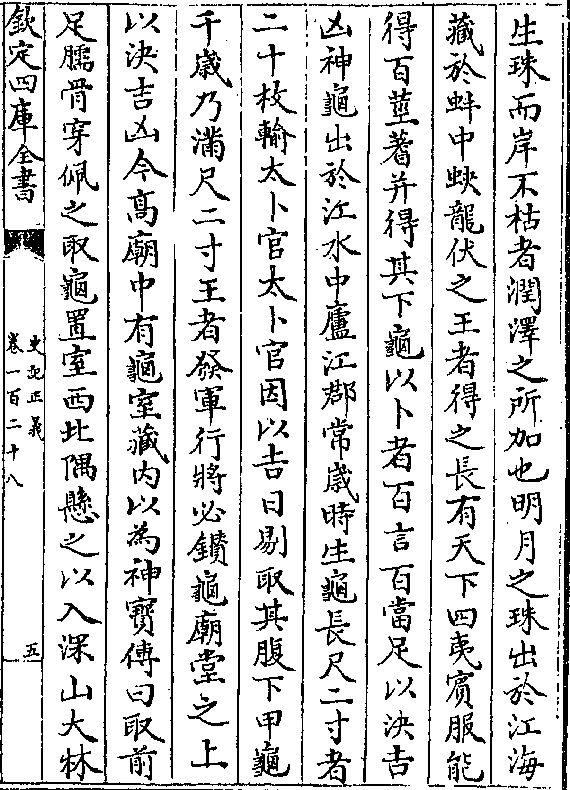 生珠而岸不枯者潤澤之所加也明月之珠出於江海
藏於蚌中蚗龍伏之王者得之長有天下四夷賓服能
得百莖蓍并得其下龜以卜者百言百當足以決吉
凶神龜出於江水中廬江郡常歲時生龜長尺二寸者
二十枚輸太卜官太卜官因以吉日剔取其腹下甲龜
千歲乃滿尺二寸王者發軍行將必鑚龜廟堂之上
以決吉凶今髙廟中有龜室藏内以為神寶傳曰取前
足臑骨穿佩之取龜置室西北隅懸之以入深山大林
欽定四庫全書
史記正義
卷一百二十八
五